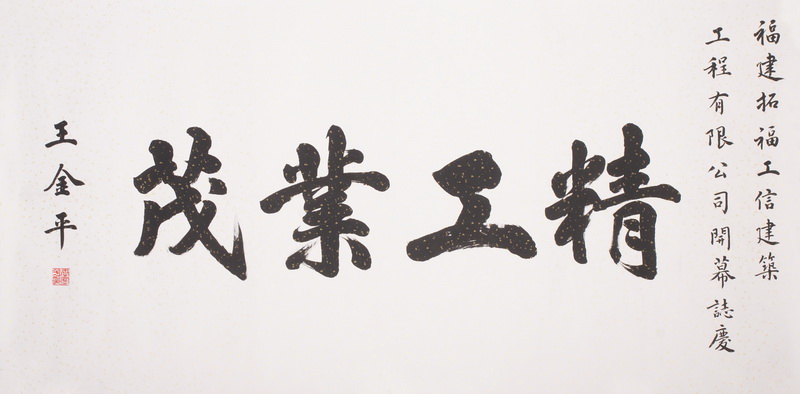 福建拓福工信建築
工程有限公司開幕誌慶
精工業茂
王金平